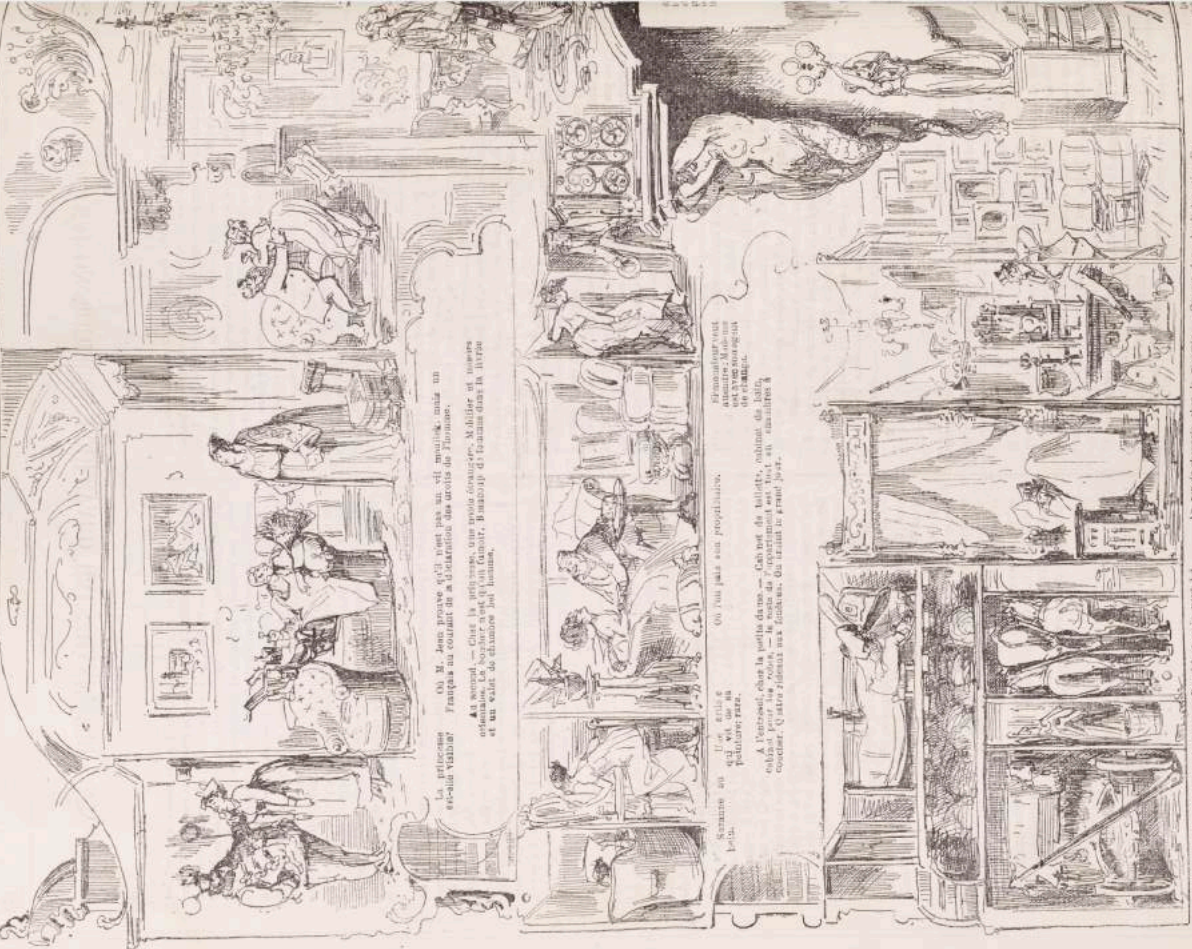 La princesse
est-elle visible?
Où M. Jean prouve qu'il n'est pas un vil moujick, mais un
Français au courant de la déclaration des droits de l'homme.
Au second. — Chez la princesse, une étrangère. Mobilier et moeurs
orientales. Le boudoir n'est qu'un fumoir. Beaucoup de femmes dans la livrée
et un valet de chambre bel homme.
Suzanne au
bain.
Une artiste
qui vit de sa
peinture; rara.
Où l'on paie son propriétaire.
veut
attendre; Madame
est avec son agent
de change.
A l'entresol, chez la petite dame — Cabinet de toilette, cabinet de bain,
cabinet pour les robes, — le reste de l'appartement est tout en chambres à
coucher. Quatre rideaux aux fenêtres. On craint le grand jour.